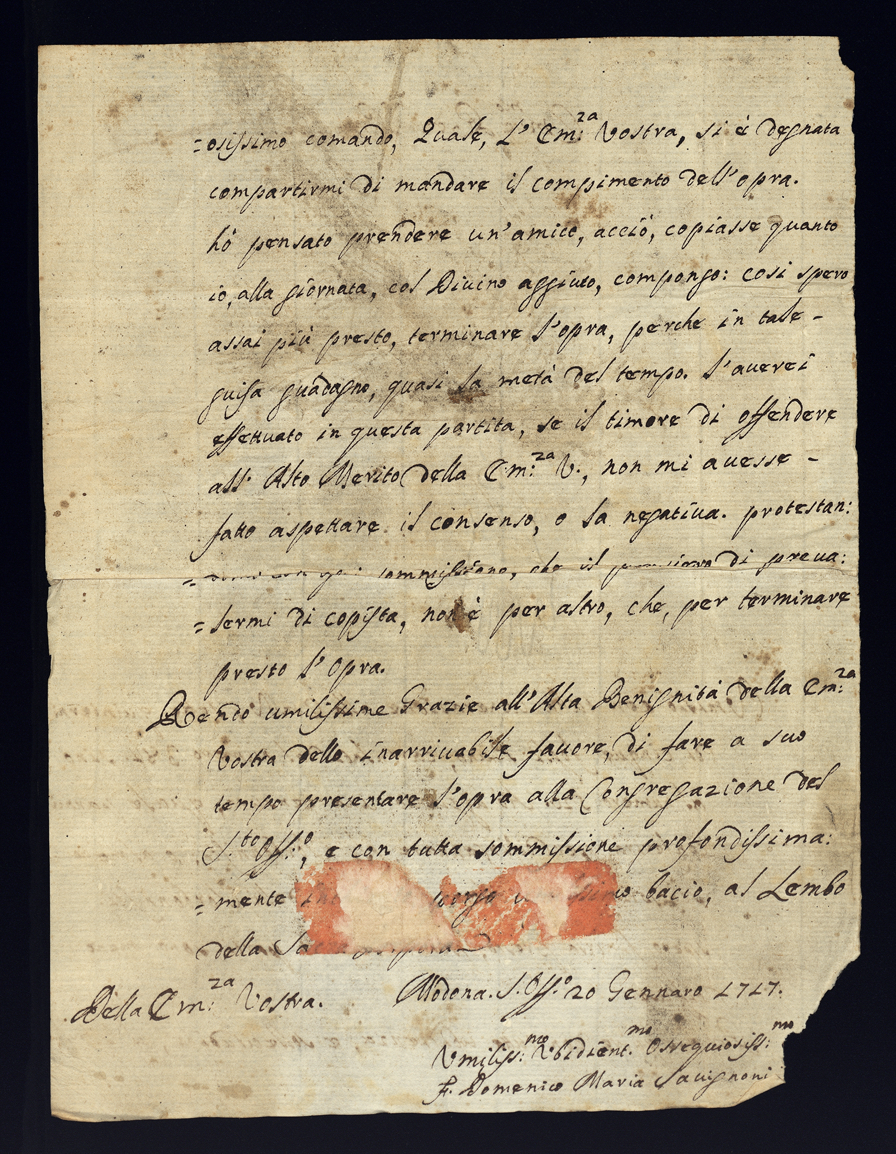 =osissimo comando, Quale, L' Em:za Vostra, si è degnata
compartirmi di mandare il compimento dell'opra.
hò pensato prendere un'amico, acciò, copiasse quanto
io, alla giornata, col Divino aggiuto, compongo: così spero
assai più presto, terminare l'opra, perche in tale -
guisa guadagno, quasi la metà del tempo. L'averei
effettuato in questa partita, se il timore di offendere
all' Alto Merito della Em:za V., non mi avesse -
fatto aspettare il consenso, o la negativa. protestan:
sommissione, che il di preva:
=lermi di copista, non è per altro, che, per terminare
presto l'opra.
Rendo umilissime Grazie all'Alta Benignità della Em:za
Vostra dello inarrivabile favore, di fare a suo
tempo presentare l'opra alla Congregazione del
S.to Off:o, e con tutta sommissione profondissima:
=mente bacio, al Lembo
della
Della Em:za Vostra. Modona. S. Off:o 20 Gennaro 1717.
Umiliss:mo Ubidient.mo Ossequiosiss:mo
F. Domenico Maria Savignoni